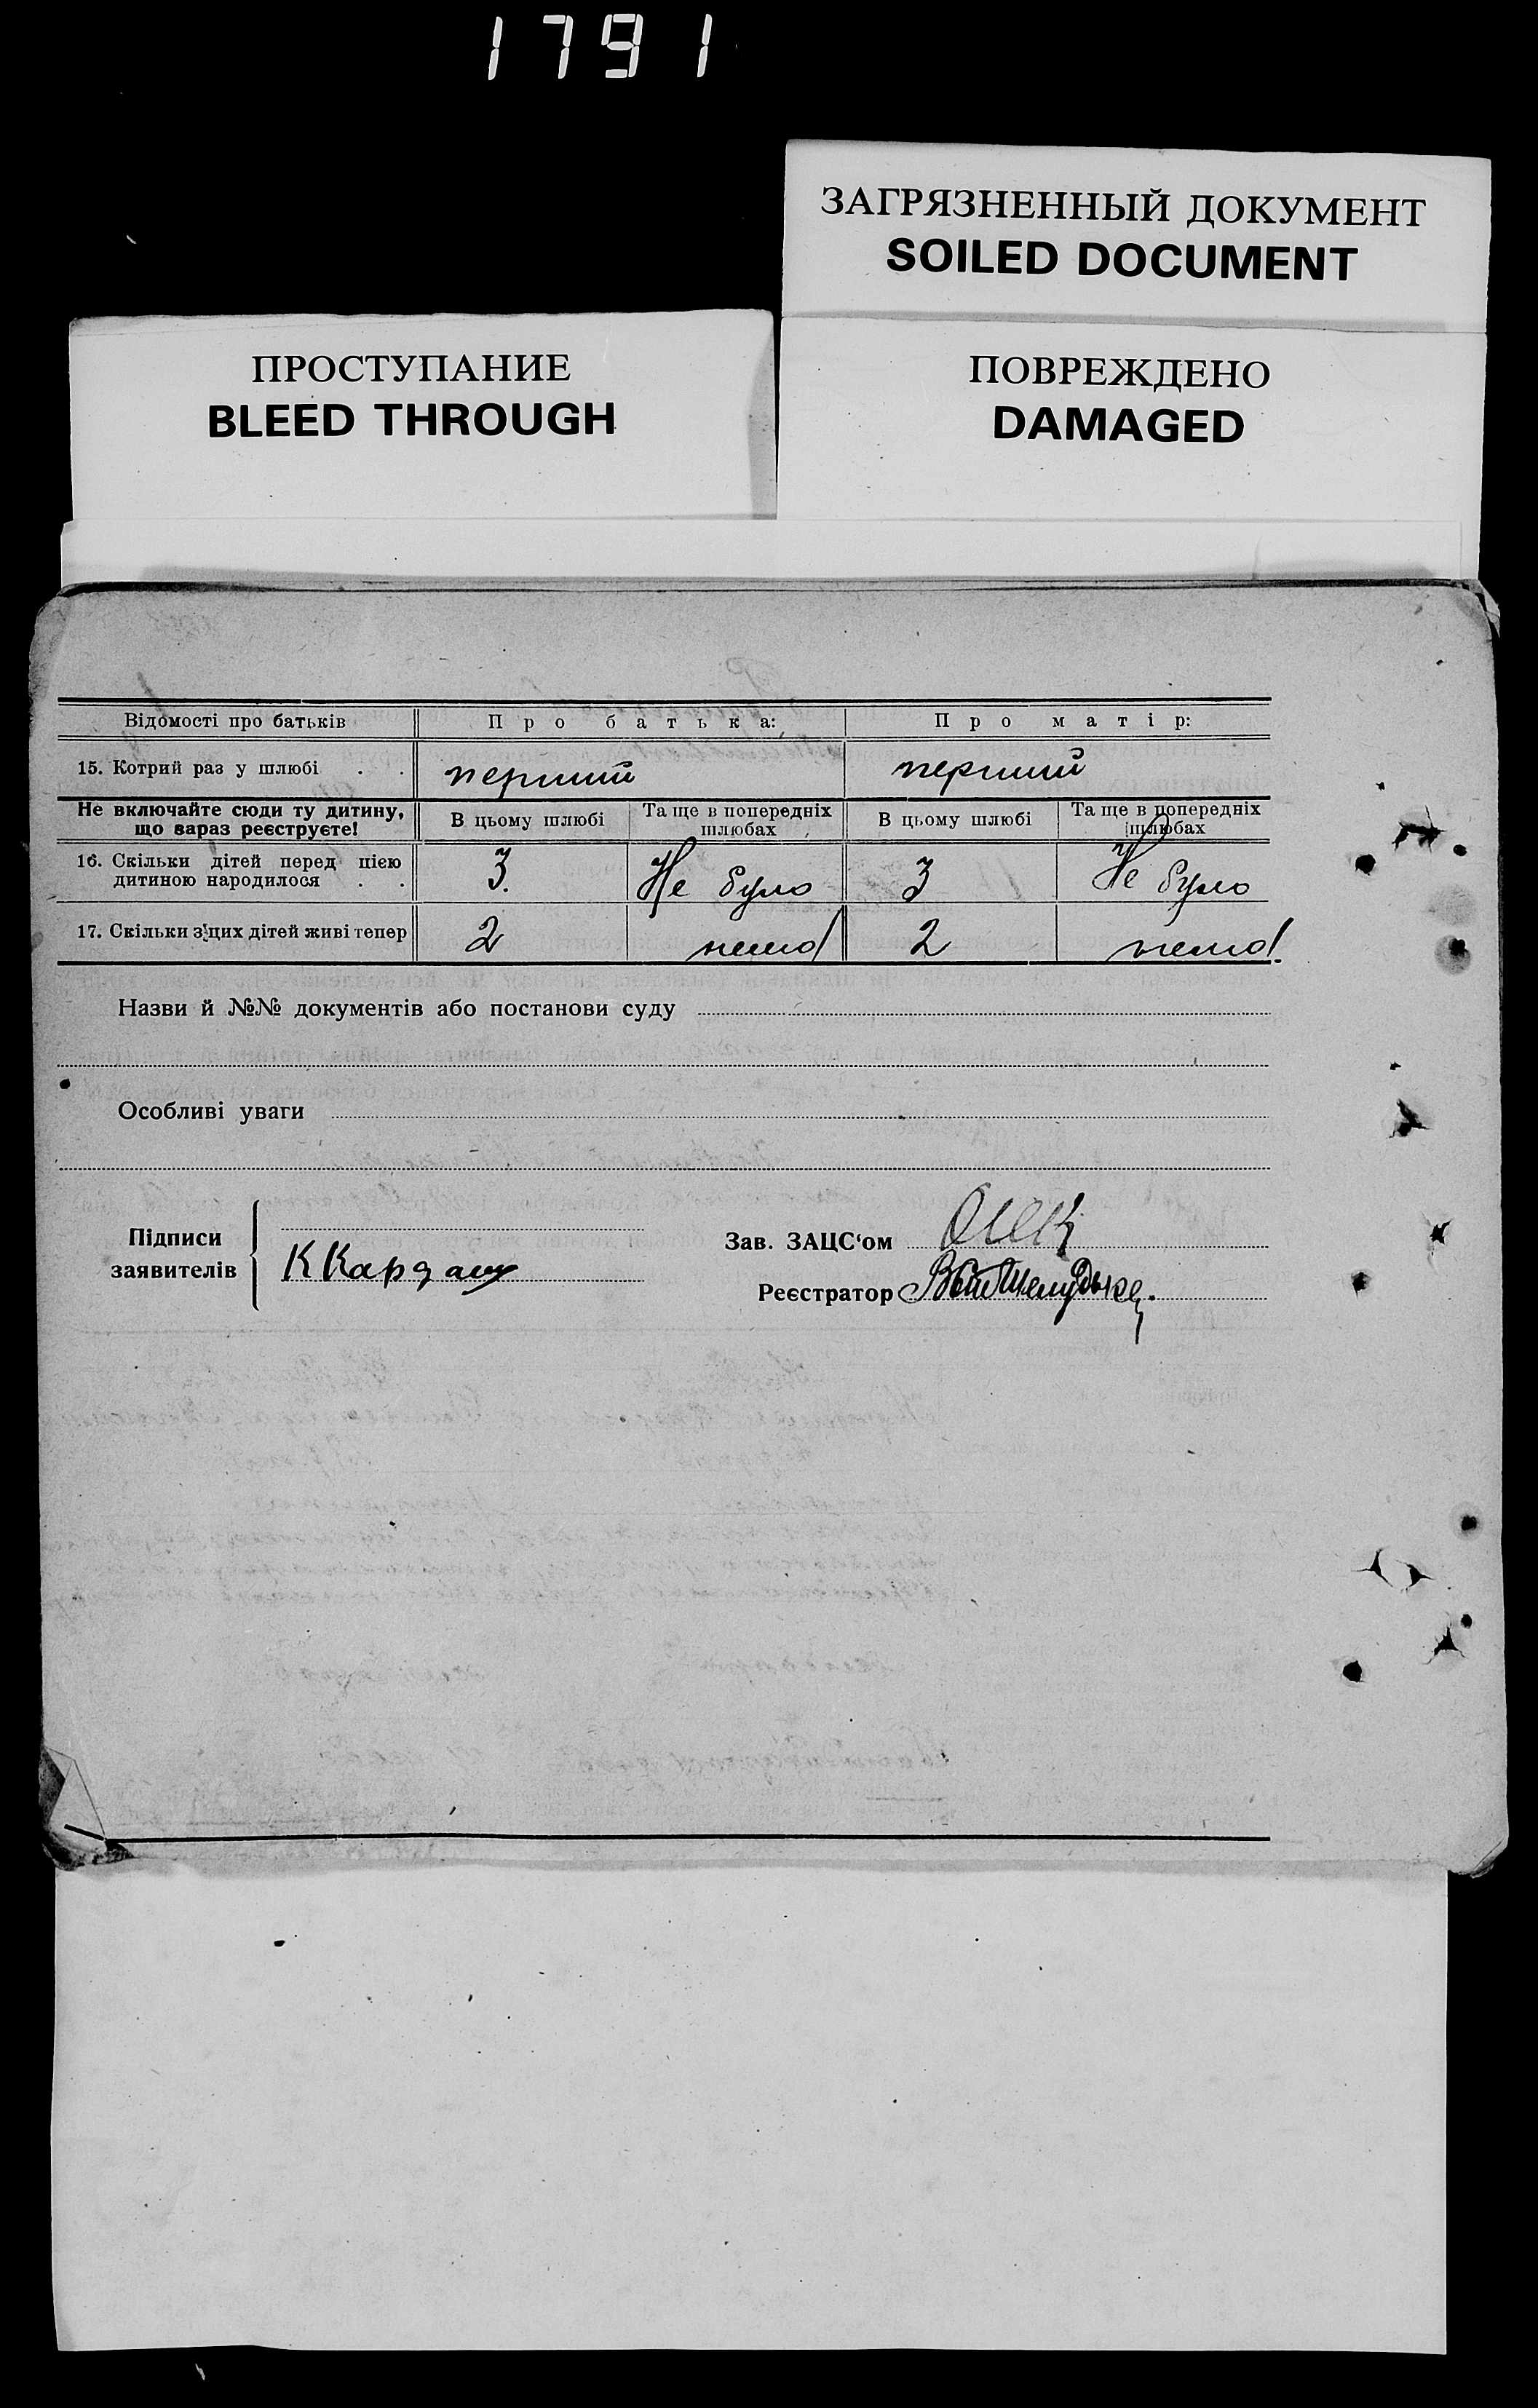 1791
ЗАГРЯЗНЕННЫЙ ДОКУМЕНТ
SOILED DOCUMENT
ПРОСТУПАНИЕ
BLEED THROUGH
ПОВРЕЖДЕНО
DAMAGED
Відомості про батьків Про батька: Про матір:
15. Котрий раз у шлюбі . . перший перший
Не включайте сюди ту дитину, що зараз реєструєте! В цьому шлюбі Та ще в попередніх шлюбах В цьому шлюбі Та ще в попередніх шлюбах
16. Скільки дітей перед цією дитиною народилося . . 3. Не було 3 Не було
17. Скільки з цих дітей живі тепер 2 нема 2 нема
Назви й №№ документів або постанови суду
Особливі уваги
Підписи заявителів К Кардаш
Зав. ЗАЦС‘ом
Реєстратор